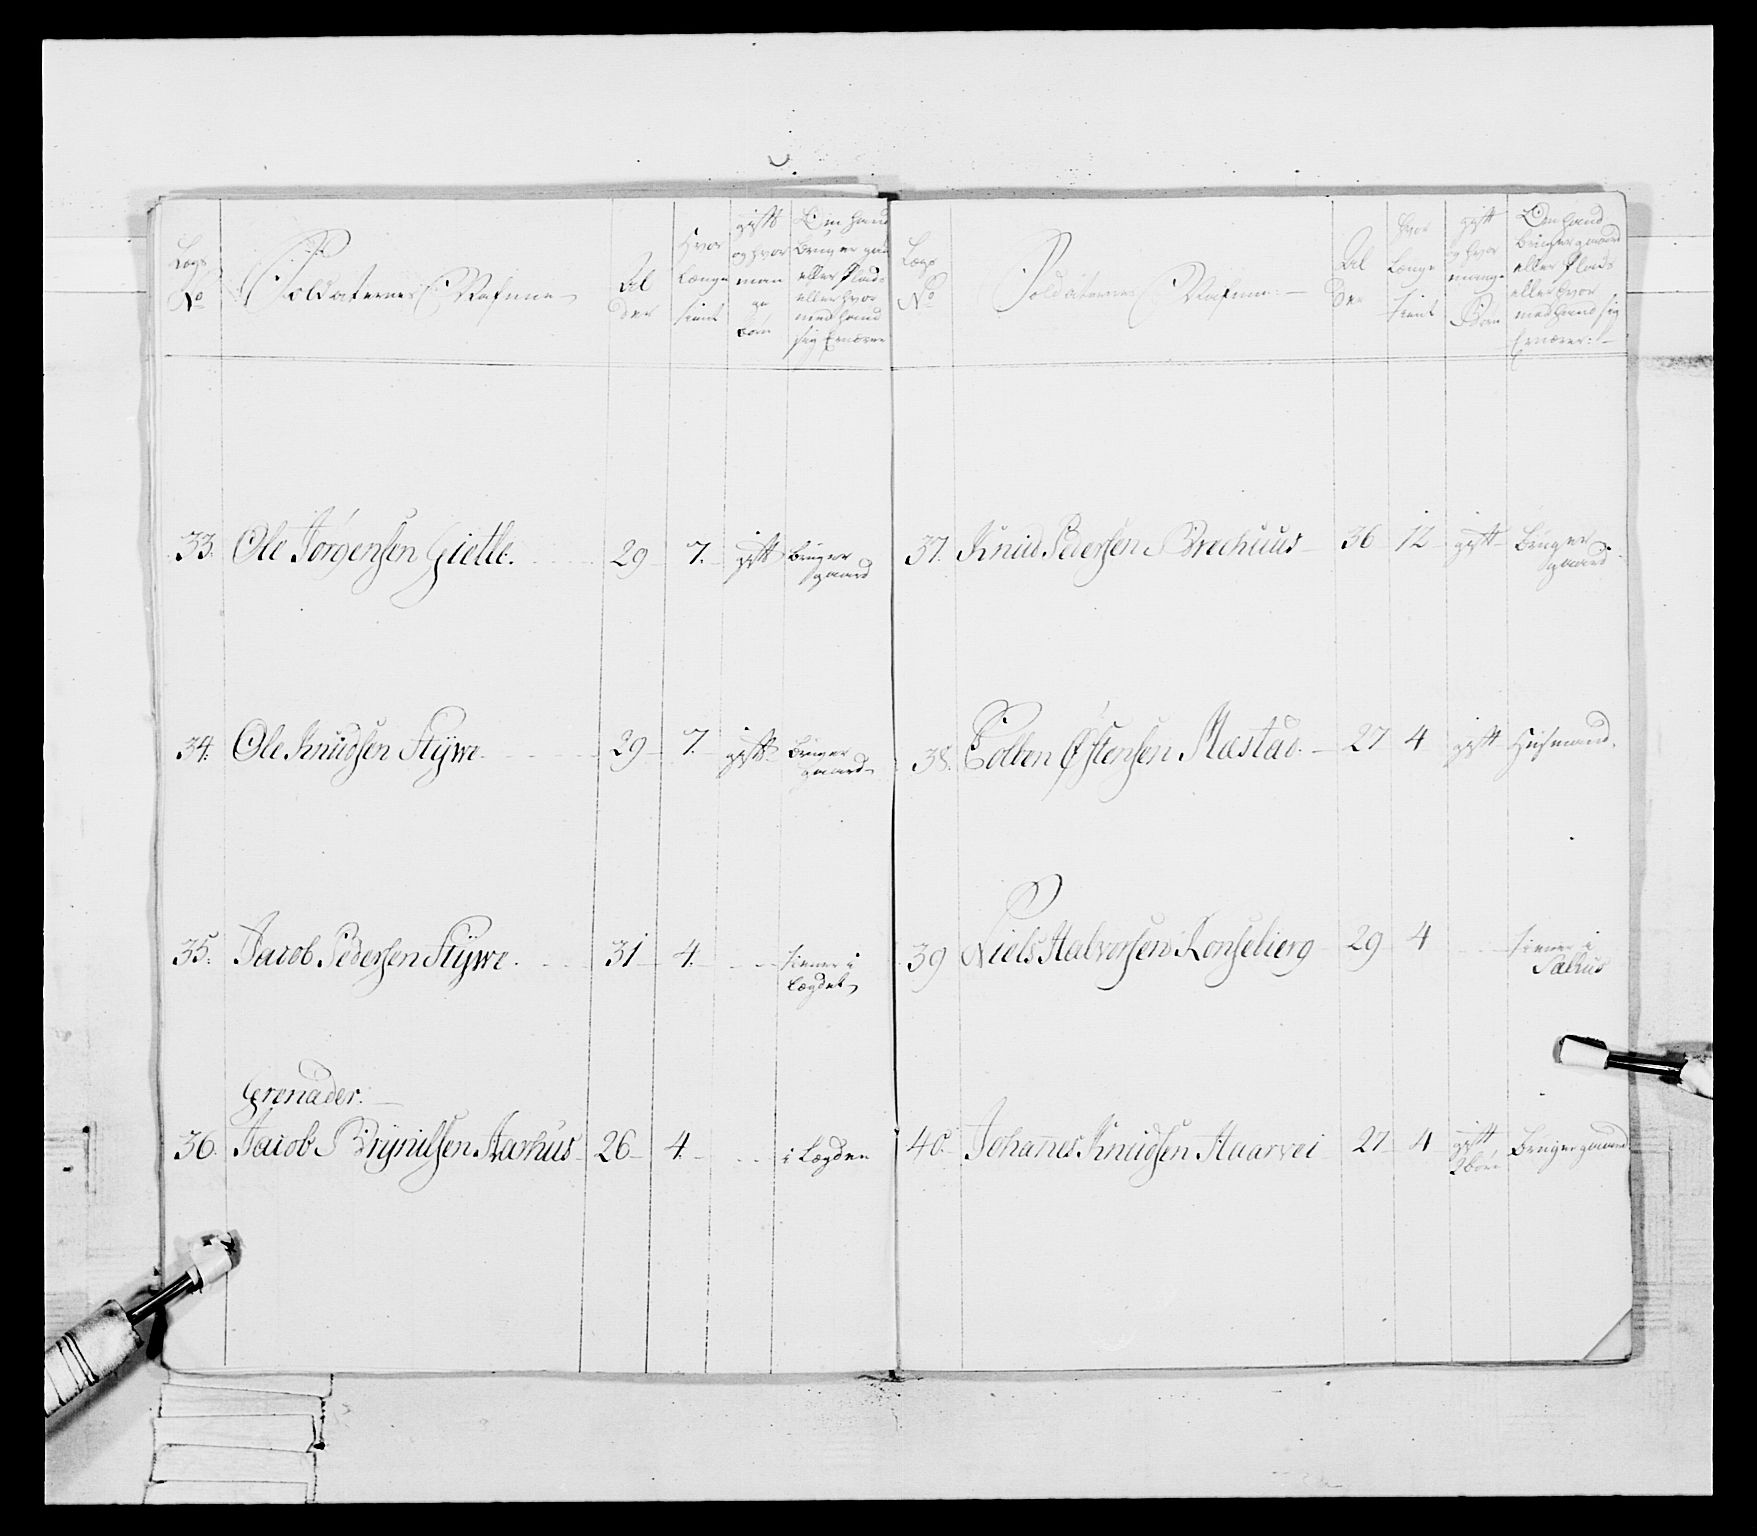 Lægs No
Soldaternes Nafnne
Al der
Hvor længe tient
gift og hvor man ge børn
Om hand bruger gaard eller Plads eller hvor med hand sig Ernærer
33. Ole Jørgensen Gielle. 29 7. gift bruger gaard
34. Ole Knudsen Stywe. 29 7. gift bruger gaard
35. Jacob Pedersen Stywe. 31 4. tiener i Lægdet
Grenader:
36. Jacob Brynilsen Aarhus 26 4. i Lægden
Lægs No
Soldaternes Nafnne
Al der
Hvor længe tient
gift og hvor mange Børn
Om hand bruger gaard eller Plads eller hvor med hand sig Ernærer:
37. Knud Pedersen Brechuus 36 12 gift Bruger gaard
38. Colben Østensen Mastad. 27 4 gift Husmand.
39 Niels Halvorsen Ronsebierg 29 4 tiener i
40. Johanes Knudsen Haarvei 27 4 gift 2 børn Bruger gaard